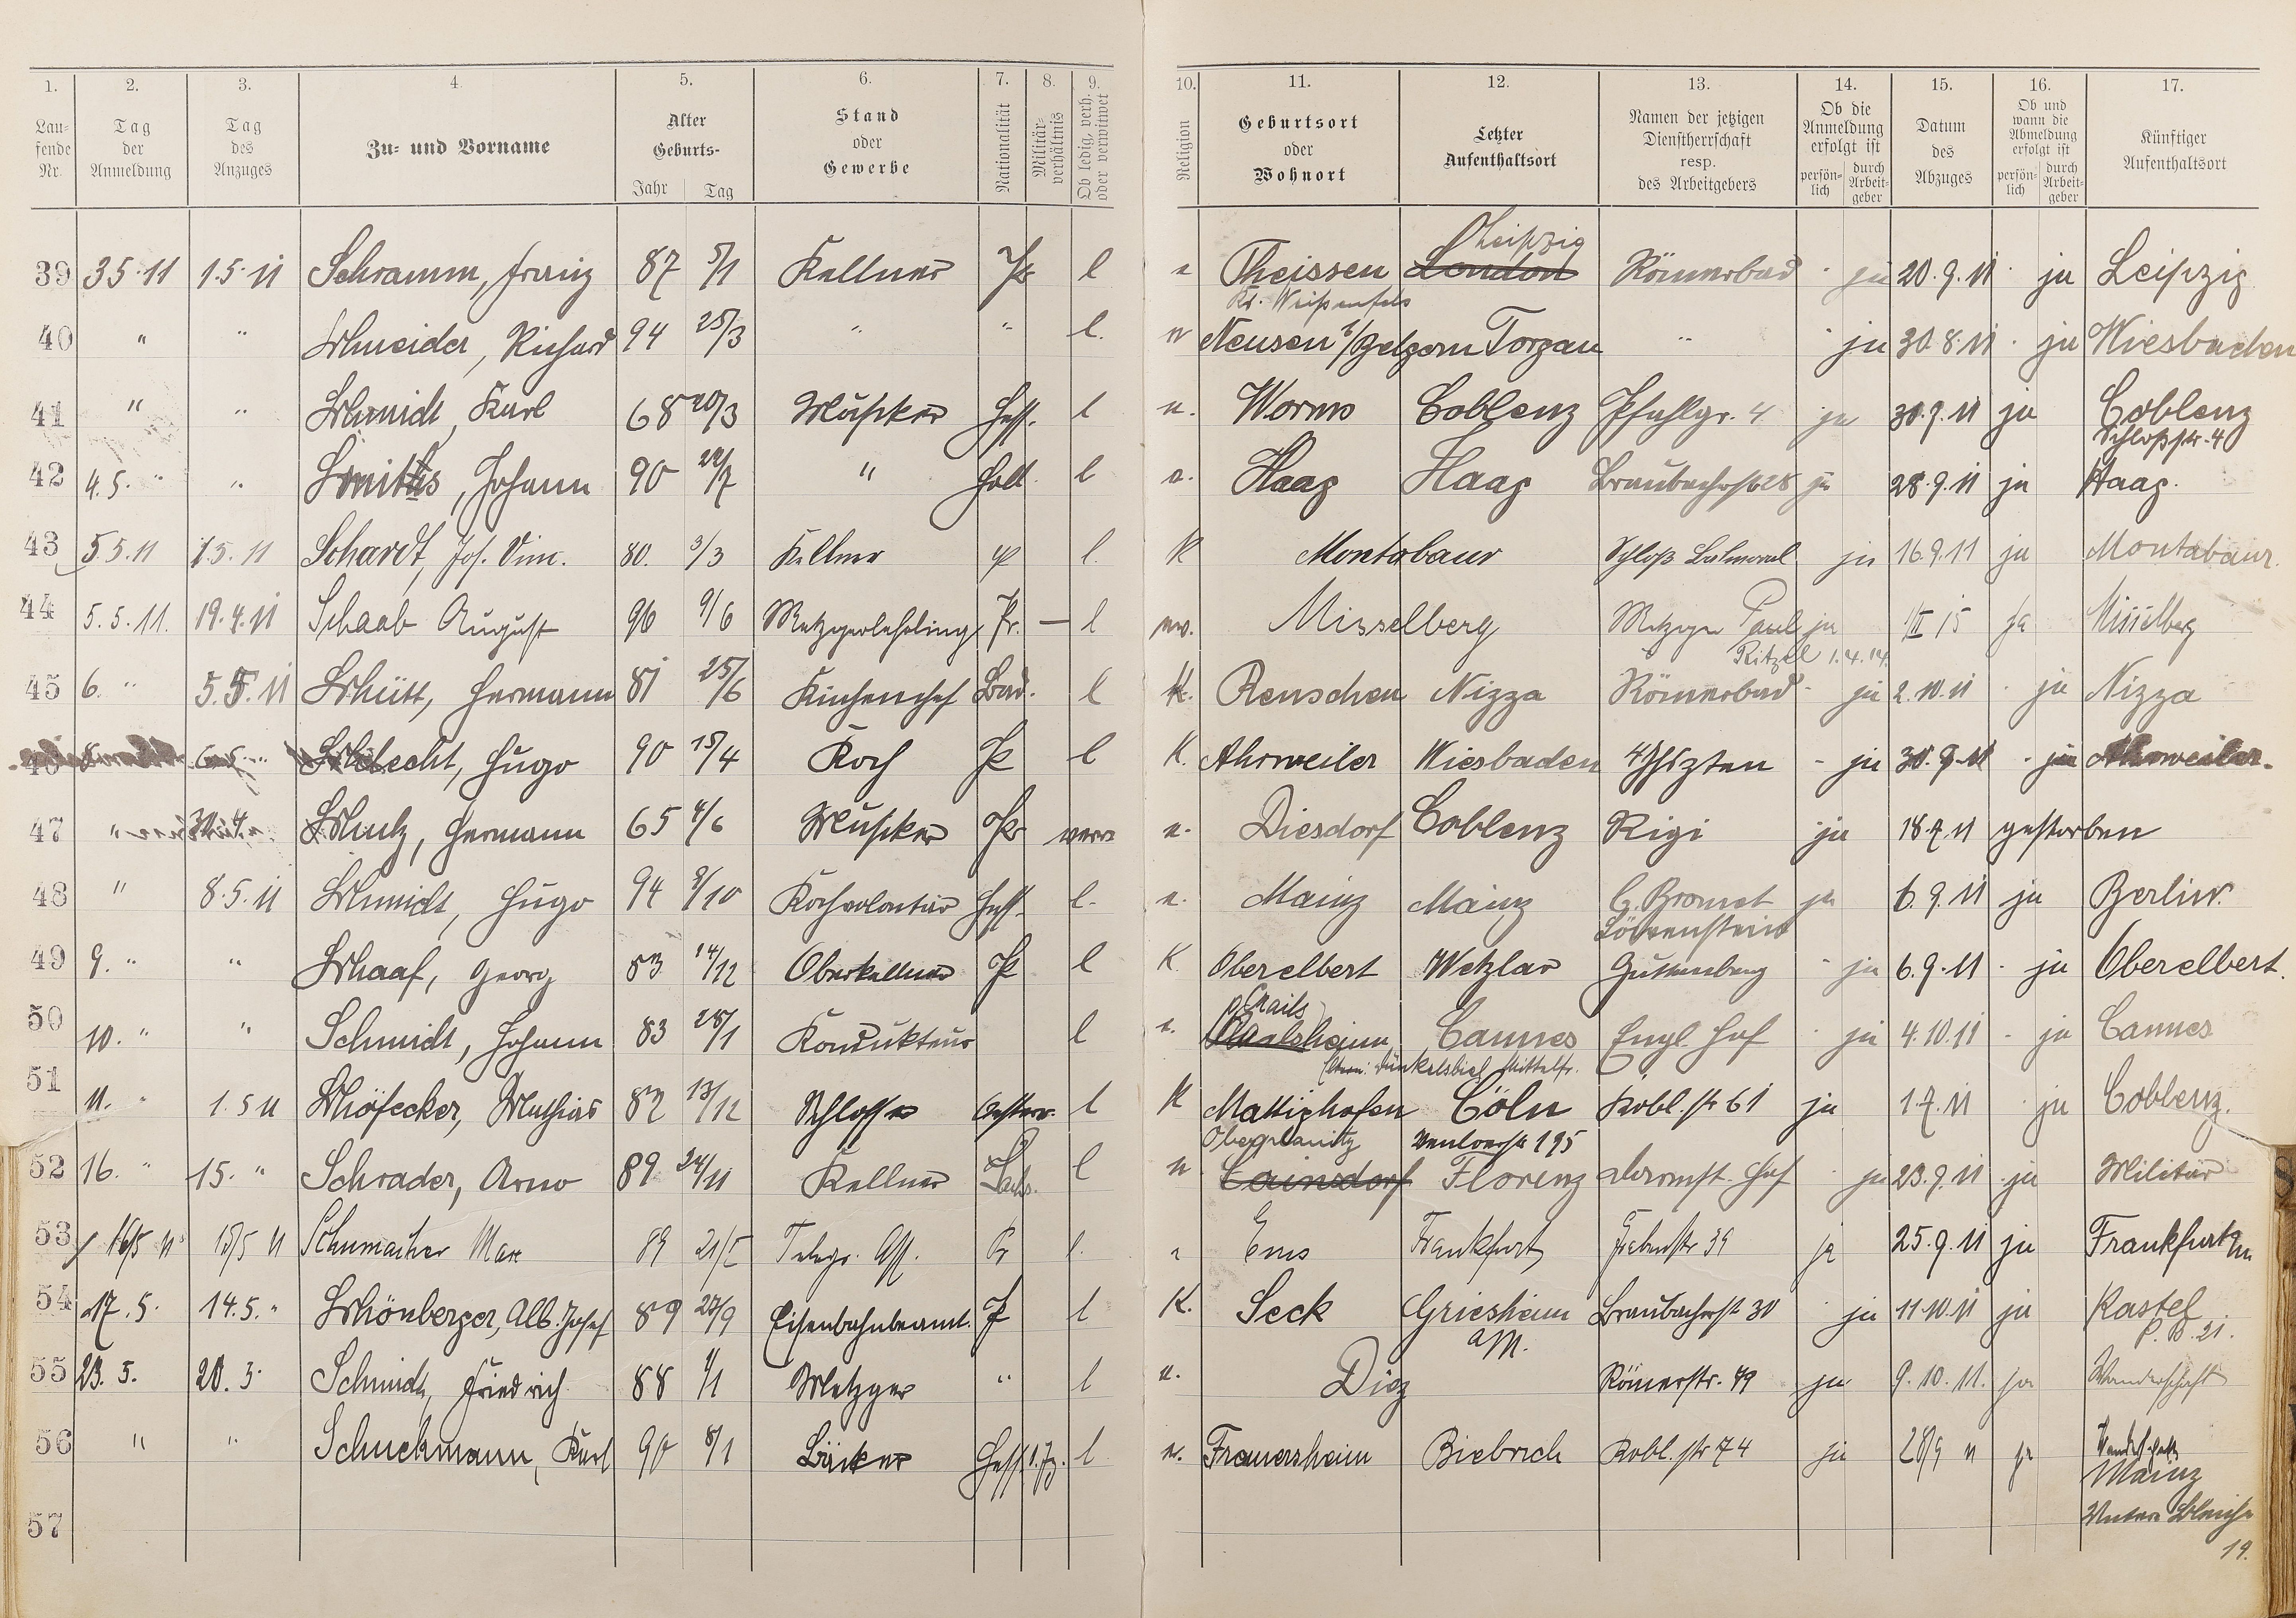 1. 2. 3. 4. 5. 6. 7. 8. 9. 10. 11. 12. 13. 14. 15. 16. 17.
Lau-fende Nr. Tag der Anmeldung Tag des Anzuges Zu- und Vorname Alter Geburts- Jahr Tag Stand oder Gewerbe Nationalität Militär-verhältnis Ob ledig, verh. oder verwitwet Religion Geburtsort oder Wohnort Letzter Aufenthaltsort Namen der jetzigen Dienstherrschaft resp. des Arbeitgebers Ob die Anmeldung erfolgt ist persön-lich durch Arbeit-geber Datum des Abzuges Ob und wann die Abmeldung erfolgt ist persön-lich durch Arbeit-geber Künftiger Aufenthaltsort
Leipzig
39 3.5.11 1.5.11 Schramm, Franz 87 5/1 Kellner Pr l e Theissen London Römerbad - ja 20.9.11 - ja Leipzig
Kr. Weißenfels
40 " " Schneider, Richard 94 25/3 " " l. ev Neusen b/Belgern Torgau " - ja 30.8.11 - ja Wiesbaden
41 " " Schmidt, Karl 68 20/3 Musiker Hess. l e. Worms Coblenz Pfahlgr. 4 ja 30.9.11 ja Coblenz
Schloßstr. 4
42 4.5. " " Smits, Johann 90 22/7 " Holl. l e. Haag Haag Braubacherstr 28 ja 28.9.11 ja Haag.
43 5.5.11 1.5.11 Schardt, Jos. Vinz. 80. 3/3 Kellner Pr l. K Montabaur Schloß Balmoral ja 16.9.11 ja Montabaur.
44 5.5.11. 19.4.11 Schaab August 96 9/6 Metzgerlehrling Pr. — l ev. Misselberg Metzger Paul ja 1/II 15 ja Misselberg
Ritzel 1.4.14.
45 6. " 5.5.11 Schütt, Hermann 81 25/6 Küchenchef Bad. l K. Renschen Nizza Römerbad - ja 2.10.11 - ja Nizza
46 8 6.5. " Schlecht, Hugo 90 15/4 Koch Pr l K. Ahrweiler Wiesbaden 4 Jhszten - ja 30.9.11 - ja Ahrweiler.
47 " 30.4. Schulz, Hermann 65 4/6 Musiker Pr verw e. Diesdorf Coblenz Rigi ja 18.7.11 gestorben
48 " 8.5.11 Schmidt, Hugo 94 9/10 Kochvolontär Hess. l. e. Mainz Mainz C. Bromet ja 6.9.11 ja Berlin.
Löwenstein
49 9. " " Schaaf, Georg 83 14/12 Oberkellner Pr l K Oberelbert Wetzlar Guttenberg - ja 6.9.11 - ja Oberelbert.
50 10. " " Schmidt, Johann 83 28/1 Kondukteur l e. Cannes Engl. Hof - ja 4.10.11 - ja Cannes
Dünkelsbiel Mittelfr.
51 11. " 1.5.11 Schöfecker, Mathias 82 13/12 Schlosser Oesterr. l K Mattighofen Cöln Kobl. str 61 ja 1.7.11 - ja Coblenz.
Oberplanitz Venloerstr 195
52 16. " 15. " Schrader, Arno 89 24/11 Kellner Sachs. l ev Cainsdorf Florenz Darmst. Hof - ja 23.9.11 - ja Militär
53 16/5 11 15/5 11 Schumacher Max 89 21/5 Telegr. Ass. Pr l. e Ems Frankfurt 39 ja 25.9.11 ja Frankfurt a/M
54 17.5. 14.5. " Schönberger, Alb. Josef 89 27/9 Eisenbahnbeamt. Pr l K. Seck Griesheim Braubacherstr 30 - ja 11.10.11 ja Kastel
a/M. P. B. 21.
55 23.5. 20.5. Schmidt, Friedrich 88 4/1 Metzger " l e. Diez Römerstr. 49 ja 9.10.11. ja Wanderschaft
56 " " Schuckmann, Karl 90 8/1 Bäcker Hess. l ev. Framersheim Biebrich Kobl. str 74 ja 28/9 11 ja
Mainz
57 Untere Bleiche
19.